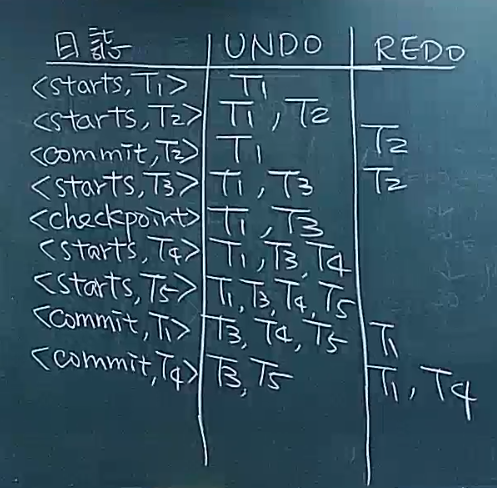 日誌 UNDO REDO
<starts,T1> T1
<starts,T2> T1,T2
<commit,T2> T1 T2
<starts,T3> T1,T3 T2
<checkpoint> T1,T3
<starts,T4> T1,T3,T4
<starts,T5> T1,T3,T4,T5
<commit,T1> T3,T4,T5 T1
<commit,T4> T3,T5 T1,T4